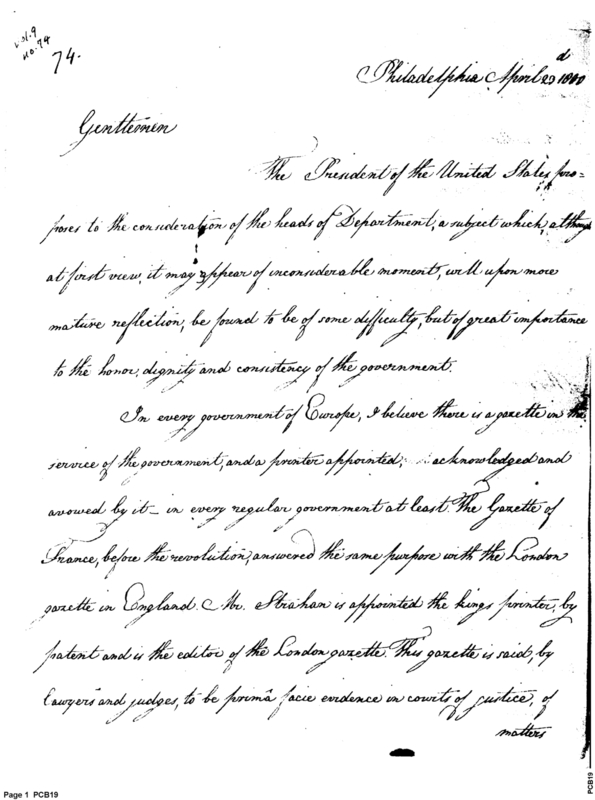 vol. 9
no. 74
74.
Philadelphia April 23d 1800
Gentlemen
The President of the United States pro=
poses to the consideration of the heads of Department, a subject which, although
at first view, it may appear of inconsiderable moment, will upon more
mature reflection, be found to be of some difficulty, but of great importance
to the honor, dignity and consistency of the government.
In every government of Europe, I believe there is a gazette in the
service of the government, and a printer appointed, acknowledged and
avowed by it — in every regular government at least. The Gazette of
France, before the revolution, answered the same purpose with the London
gazette in England. Mr. Strahan is appointed the kings printer, by
patent and is the editor of the London gazette. This gazette is said, by
Lawyers and judges, to be primâ facie evidence in courts of justice, of
matters
Page 1 PCB19
PCB19